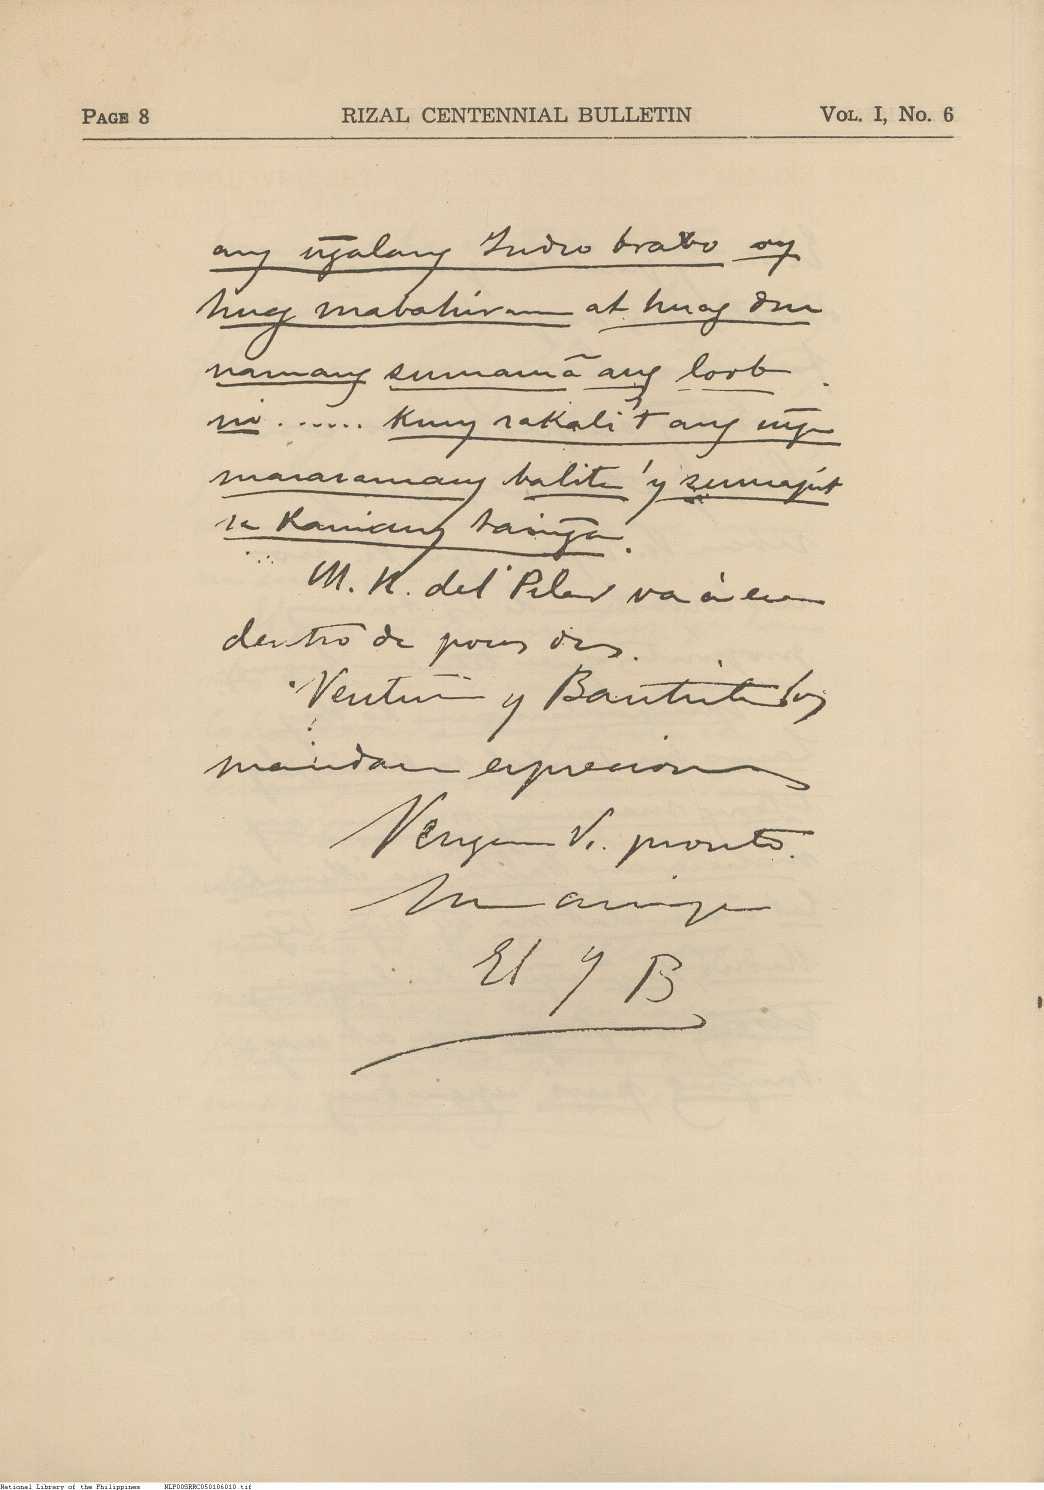 PAGE 8 RIZAL CENTENNIAL BULLETIN VOL. I, No. 6
ang n͠galang Indio bravo ay
huag mabahiran at huag din
namang sumamâ ang loob
ni ...... Kung sakali't ang mg̃a
masasamang balita'y sumapit
sa Kaniang tain͠ga.
M. H. del Pilar va á esa
dentro de pocos dias.
Ventura y Bautista los
mandan expresiones
Vengan Vs. pronto.
Su amigo
El Y B
National Library of the Philippines NLP00SRRC050106010.tif